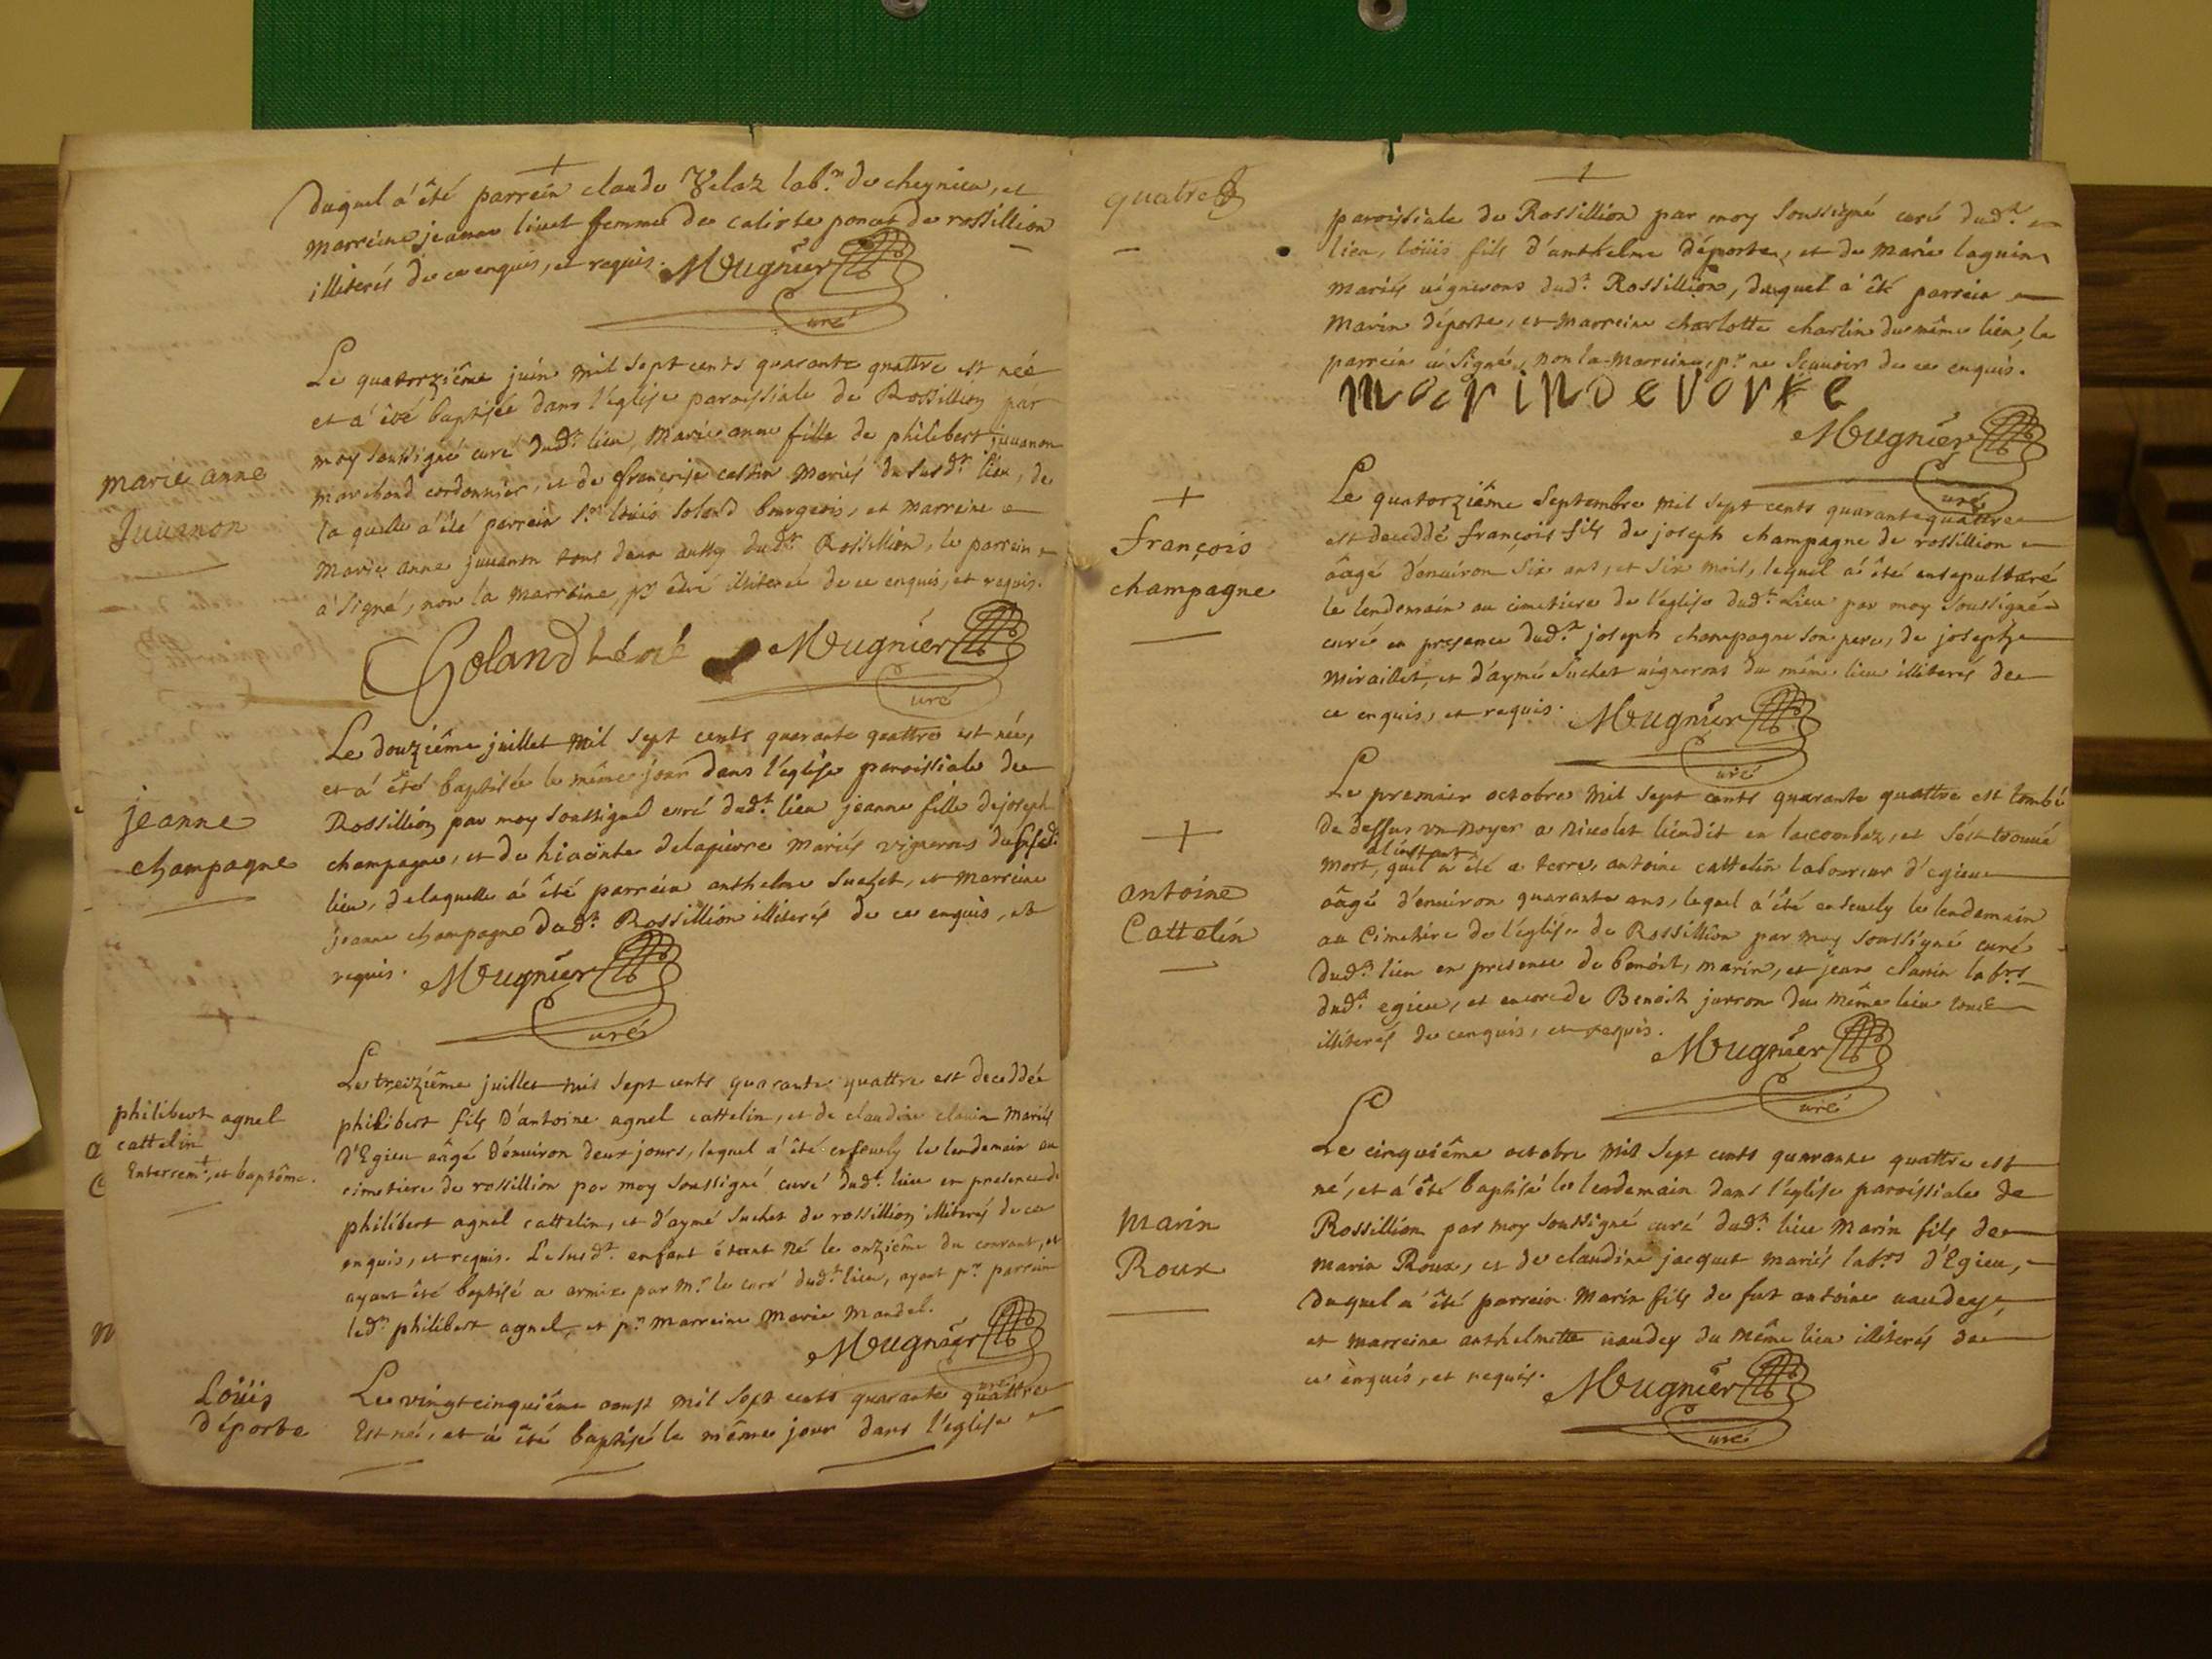 duquel a été parrein claude Velaz lab.r de cheynieu, et
marreine jeanne liuet femme de calixte poncet de rossillion
illiterés de ce enquis, et requis. Mugnier
curé
marie anne
Juuanon
Le quatorziême juin mil sept cents quarante quattre est née
et a été baptisée dans l'église paroissiale de Rossillion par
moy soussigné curé dud.t lieu, Marie anne fille de philibert juuanon
marchand cordonnier, et de françoise mariés du susd.t lieu, de
la quelle a été parrein s.r Louis Soland bourgeois, et marreine
marie anne juuanon tous deux aussy dud.t Rossillion, le parrein
a signé, non la marreine, p.r être illiterée de ce enquis, et requis.
Soland Mugnier
curé
jeanne
champagne
Le douziême juillet mil sept cents quarante quattre est née,
et a été baptisée le même jour dans l'église paroissiale de
Rossillion par moy soussigné curé dud.t lieu jeanne fille de joseph
champagne, et de hiacinte delapierre mariés vignerons du susd.t
lieu, de laquelle a été parrein anthelme Suchet, et marreine
jeanne champagne dud.t Rossillion illiterés de ce enquis, et
requis. Mugnier
curé
philibert agnel
cattelin
Enterrem.t, et baptême.
Le treiziême juillet mil sept cents quarante quattre est deceddée
philibert fils d'antoine agnel cattelin, et de claudine clauin mariés
d'Egieu âagé d'enuiron deux jours, lequel a été enseuely le lendemain au
cimetiere de rossillion par moy soussigné curé dud.t lieu en presence de
philibert agnel cattelin, et d'aymé Suchet de rossillion illiterés de ce
enquis, et requis. Le susd.t enfant étant né le onziême du courant, et
ayant été baptisé a armix par m.r le curé dud.t lieu, ayant p.r parrein
led.t philibert agnel, et p.r marreine marie mandel.
Mugnier
curé
Loüis
déporte
Le vingtcinquiême aoust mil sept cents quarante quattre
Est né, et a été baptisé le même jour dans l'église
quatre
paroissiale de Rossillion par moy soussigné curé dud.t
lieu, Loüis fils d'anthelme déporte, et de marie laguin
mariés uignerons dud.t Rossillion, duquel a été parrein
Marin déporte, et marreine charlotte charlin du même lieu, le
parrein a signé, non la marreine, p.r ne scauoir de ce enquis.
marin De porte
Mugnier
curé
françois
champagne
Le quatorziême septembre mil sept cents quarante quattre
est deceddé françois fils de joseph champagne de rossillion
âagé d'enuiron six ans, et six mois, lequel a été ensepulturé
le lendemain au cimetiere de l'église dud.t Lieu par moy soussigné
curé en presence dud.t joseph champagne son pere, de joseph
miraillet, et d'aymé Suchet uignerons du même lieu illiterés de
ce enquis, et requis. Mugnier
curé
antoine
Cattelin
Le premier octobre mil sept cents quarante quattre est tombé
de dessus un noyer a nicolet liendit en lacombaz, et s'est trouué
a l'instant
mort, quil a été a terre, antoine cattelin laboureur d'egieu
âagé d'enuiron quarante ans, lequel a été enseuely le lendemain
au Cimetiere de l'église de Rossillion par moy soussigné curé
dud.t lieu en presence de benoit, marin, et jean clauin lab.rs
dud.t egieu, et encor de Benoit jurron du même lieu tous
illiterés de ce enquis, et requis.
Mugnier
curé
Marin
Roux
Le cinquiême octobre mil sept cents quarante quattre est
né, et a été baptisé le lendemain dans l'église paroissiale de
Rossillion par moy soussigné curé dud.t lieu Marin fils de
marin Roux, et de claudine jacquet mariés lab.rs d'Egieu,
duquel a été parrein Marin fils de fut antoine uaudey,
et marreine anthelmette uaudey du même lieu illiterés de
ce enquis, et requis. Mugnier
curé